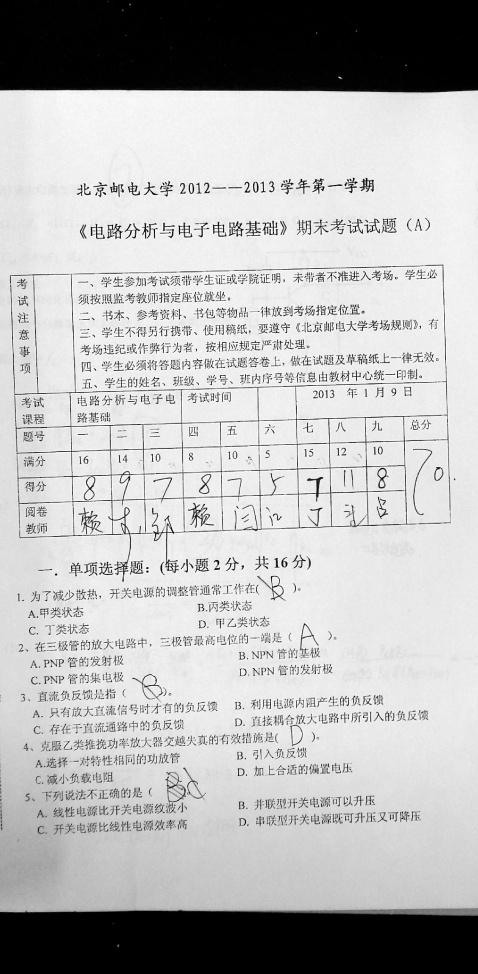 北京邮电大学 2012——2013 学年第一学期
《电路分析与电子电路基础》期末考试试题（A）
考试注意事项
一、学生参加考试须带学生证或学院证明，未带者不准进入考场。学生必
须按照监考教师指定座位就坐。
二、书本、参考资料、书包等物品一律放到考场指定位置。
三、学生不得另行携带、使用稿纸，要遵守《北京邮电大学考场规则》，有
考场违纪或作弊行为者，按相应规定严肃处理。
四、学生必须将答题内容做在试题答卷上，做在试题及草稿纸上一律无效。
五、学生的姓名、班级、学号、班内序号等信息由教材中心统一印制。
考试课程 电路分析与电子电路基础 考试时间 2013 年 1 月 9 日
题号 一 二 三 四 五 六 七 八 九 总分
满分 16 14 10 8 10 5 15 12 10
得分 8 9 7 8 7 5 7 11 8 70
阅卷教师 赖 赖 闫 江 丁 吕
一．单项选择题：(每小题 2 分，共 16 分)
1. 为了减少散热，开关电源的调整管通常工作在( B )。
A.甲类状态 B.丙类状态
C. 丁类状态 D. 甲乙类状态
2、在三极管的放大电路中，三极管最高电位的一端是（ A ）。
A. PNP 管的发射极 B. NPN 管的基极
C. PNP 管的集电极 D. NPN 管的发射极
3、直流负反馈是指（ B ）。
A. 只有放大直流信号时才有的负反馈 B. 利用电源内阻产生的负反馈
C. 存在于直流通路中的负反馈 D. 直接耦合放大电路中所引入的负反馈
4、克服乙类推挽功率放大器交越失真的有效措施是( D )。
A.选择一对特性相同的功放管 B. 引入负反馈
C.减小负载电阻 D. 加上合适的偏置电压
5、下列说法不正确的是（ B d
A. 线性电源比开关电源纹波小 B. 并联型开关电源可以升压
C. 开关电源比线性电源效率高 D. 串联型开关电源既可升压又可降压